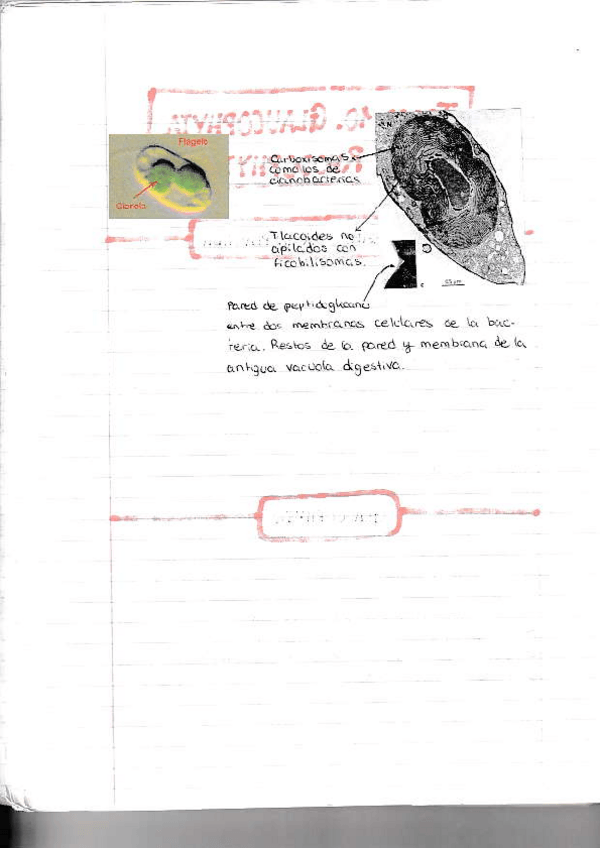 Flagelo
Cianela
Carboxisomas
como los de
cianobacterias
Tilacoides no
apilados con
ficobilisomas.
Pared de peptidoglicano
entre dos membranas celulares de la bac-
teria. Restos de la pared y membrana de la
antigua vacuola digestiva.